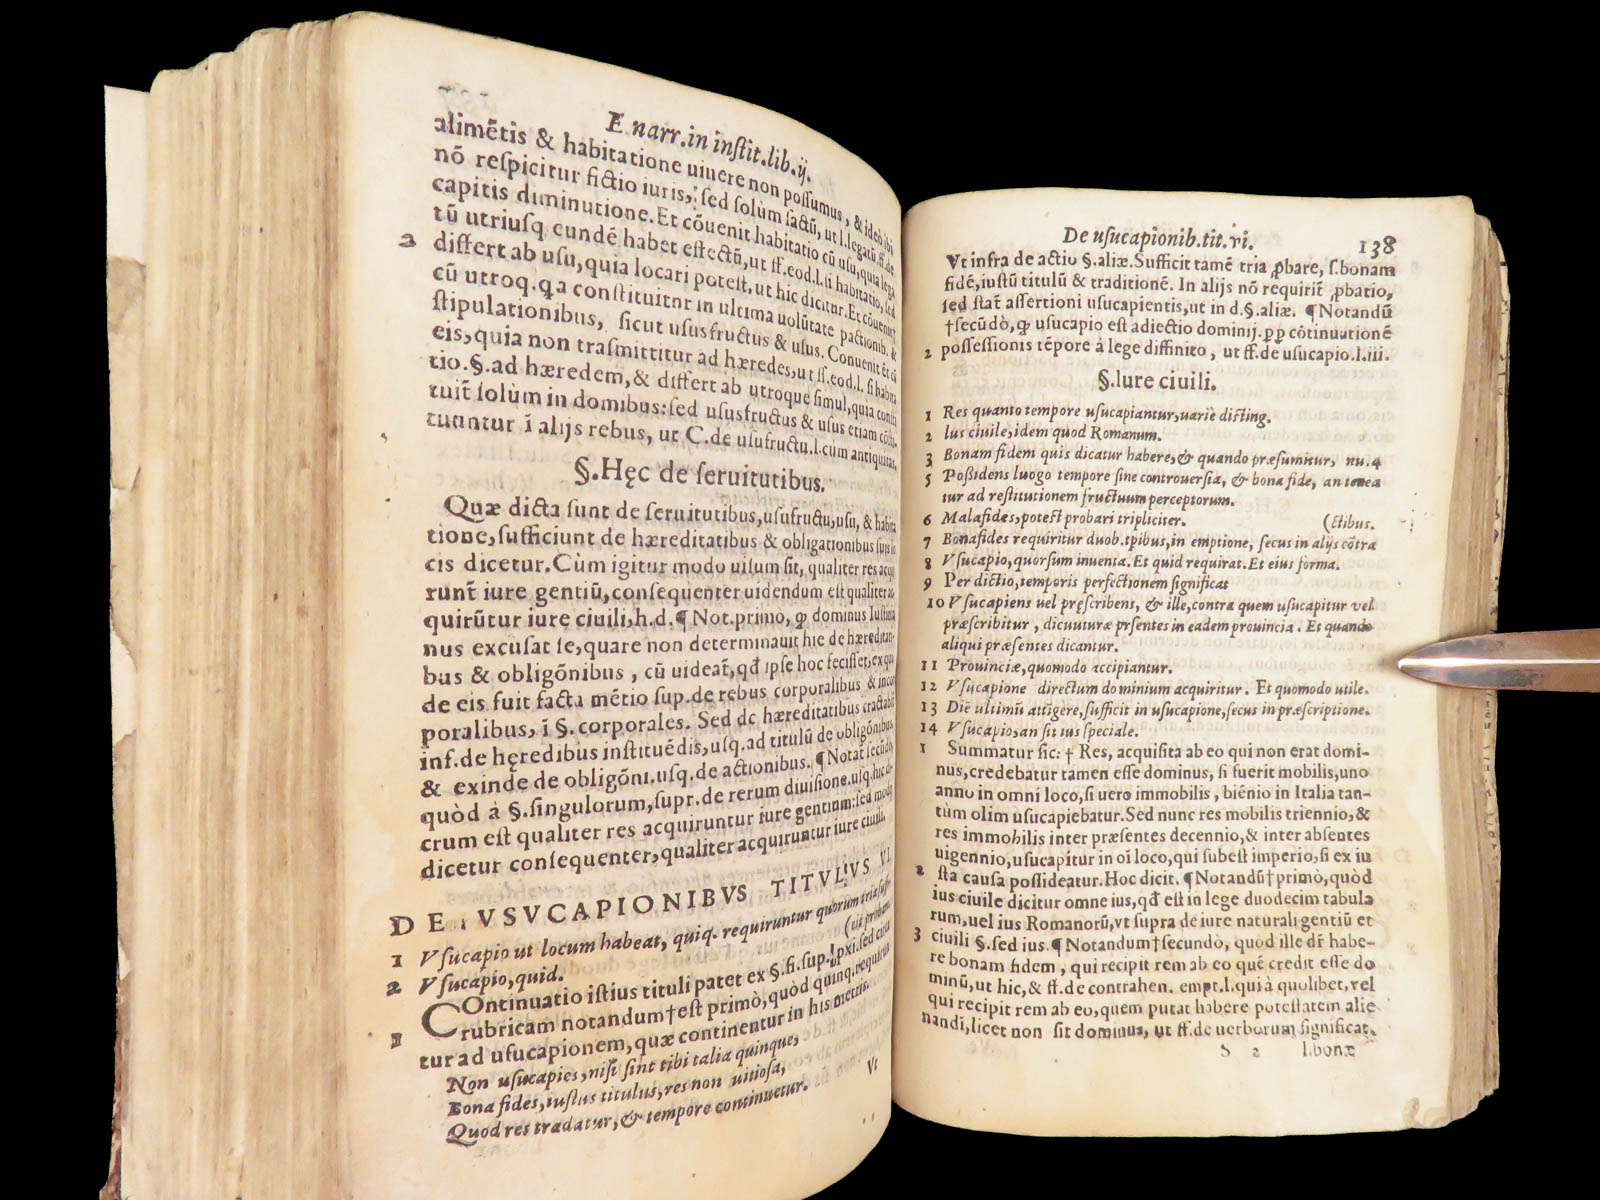 E narr.in inſtit.lib.ij.
alimẽtis & habitatione uiuere non poſſumus, & ideò ibi
nõ reſpicitur fictio iuris, ſed ſolùm factũ, ut l.legatũ.ff.de
capitis diminutione. Et cõuenit habitatio cũ uſu, quia lega
tũ utriuſq eundẽ habet effectũ, ut ff.eod.l.ſi habitatio, ſed
3 differt ab uſu, quia locari poteſt. ut hic dicitur. Et cõuenit
cũ utroq. qa conſtituitnr in ultima uolũtate pactionib. &
ſtipulationibus, ſicut uſusfructus & uſus. Conuenit ẽt cũ
eis, quia non trãſmittitur ad hæredes, ut ff.eod.l. ſi habita
tio.§.ad hæredem, & differt ab utroque ſimul, quia conſti
tuit̃ ſolùm in domibus: ſed uſusfructus & uſus etiam cõſti-
tuuntur ĩ alijs rebus, ut C.de uſufructu.l.cùm antiquitas.
§.Hęc de ſeruitutibus.
Quæ dicta ſunt de ſeruitutibus, uſufructu, uſu, & habita
tione, ſufficiunt de hæreditatibus & obligationibus ſuis lo
cis dicetur. Cùm igitur modo uiſum ſit, qualiter res acqui
runt̃ iure gentiũ, conſequenter uidendum eſt qualiter ac
quirũtur iure ciuili, h.d. ¶ Not. primò, ꝙ dominus Iuſtinia
nus excuſat ſe, quare non determinauit hic de hæreditati-
bus & obligõnibus, cũ uideat̃, qđ ipſe hoc feciſſet, ex quo
de eis fuit facta mẽtio ſup.de rebus corporalibus & incor
poralibus, ĩ §. corporales. Sed de hæreditatibus tractabit̃
inf.de hęredibus inſtituẽdis, uſq.ad titulũ de obligõnibus,
& exinde de obligõni.uſq.de actionibus. ¶ Notat̃ ſecũdò,
quòd à §.ſingulorum, ſupr.de rerum diuiſione.uſq.hic di-
crum eſt qualiter res acquiruntur iure gentium: ſed modò
dicetur conſequenter, qualiter acquiruntur iure ciuili.
DE VSVCAPIONIBVS TITVLVS VI.
1 Vſucapio ut locum habeat, quiq. requiruntur quorum tria ſuffi-
2 Vſucapio, quid. (cit probare.
COntinuatio iſtius tituli patet ex §.fi.ſup. ꝓxi.ſed circa
1 rubricam notandum†eſt primò, quòd quinq.requirun
tur ad uſucapionem, quæ continentur in his metris.
Non uſucapies, niſi ſint tibi talia quinque,
Bona fides, iuſtus titulus, res non uitioſa,
Quod res tradatur, & tempore continuetur.
Vt
De uſucapionib.tit.vi. 138
Vt infra de actio §.aliæ. Sufficit tamẽ tria ꝓbare, ſ.bonam
fidẽ, iuſtũ titulũ & traditionẽ. In alijs nõ requirit̃ ꝓbatio,
ſed ſtat̃ aſſertioni uſucapientis, ut in d.§.aliæ. ¶Notandũ
†ſecũdò, ꝙ uſucapio eſt adiectio dominij. ꝑꝑ cõtinuationẽ
2 poſſeſſionis tẽpore à lege diffinito, ut ff.de uſucapio.l.iii.
§.Iure ciuili.
1 Res quanto tempore uſucapiantur, uariè diſting.
2 Ius ciuile, idem quod Romanum.
3 Bonam fidem quis dicatur habere, & quando præſumitur, nu.4
5 Poßidens luogo tempore ſine controuerſia, & bona fide, an tenea
tur ad reſtitutionem fructuum perceptorum.
6 Malafides, poteſt probari tripliciter. (ctibus.
7 Bonafides requiritur duob.tp̃ibus, in emptione, ſecus in alijs cõtra
8 Vſucapio, quorſum inuenta. Et quid requirat. Et eius forma.
9 Per dictio, temporis perfectionem ſignificat
10 Vſucapiens uel pręſcribens, & ille, contra quem uſucapitur vel
præſcribitur, dicuuturæ prſentes in eadem prouincia. Et quando
aliqui præſentes dicantur.
11 Prouinciæ, quomodo accipiantur.
12 Vſucapione directum dominium acquiritur. Et quomodo utile.
13 Diẽ ultimũ attĩgere, ſufficit in uſucapione, ſecus in præſcriptione.
14 Vſucapio, an ſit ius ſpeciale.
1 Summatur ſic: † Res, acquiſita ab eo qui non erat domi-
nus, credebatur tamen eſſe dominus, ſi fuerit mobilis, uno
anno in omni loco, ſi uero immobilis, biẽnio in Italia tan-
tùm olim uſucapiebatur. Sed nunc res mobilis triennio, &
res immobilis inter præſentes decennio, & inter abſentes
uigennio, uſucapitur in oĩ loco, qui ſubeſt imperio, ſi ex iu
2 ſta cauſa poſſideatur. Hoc dicit. ¶Notandũ† primò, quòd
ius ciuile dicitur omne ius, qđ eſt in lege duodecim tabula
rum, uel ius Romanorũ, vt ſupra de iure naturali gentiũ et
3 ciuili §.ſed ius. ¶Notandum†ſecundò, quòd ille dr̃ habe-
re bonam fidem, qui recipit rem ab eo quẽ credit eſſe do
minũ, ut hic, & ff.de contrahen. empt.l.qui à quolibet, vel
qui recipit rem ab eo, quem putat habere poteſtatem alie
nandi, licet non ſit dominus, ut ff.de uerborum ſignificat.
S 2 l.bonæ